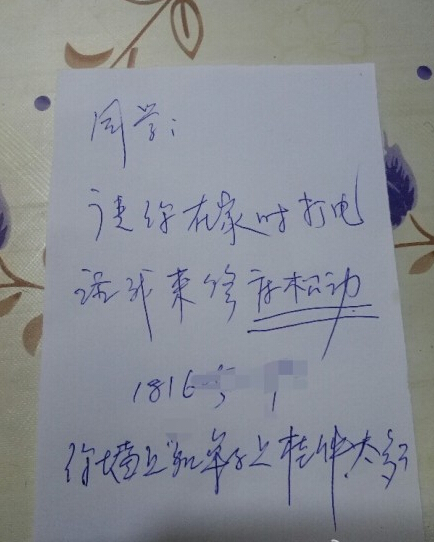 同学:
请你在家时打电
话我来修床松动
1816
你墙上和桌子上挂件太多